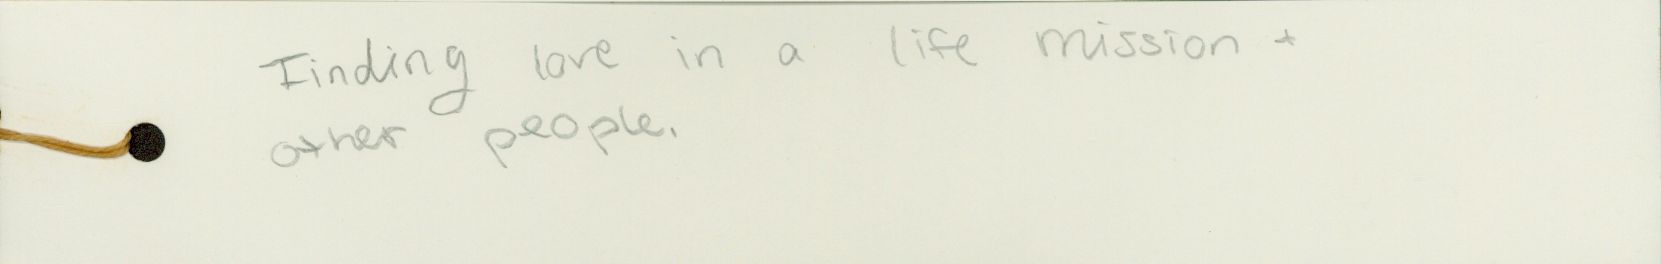 Finding love in a life mission +
other people.